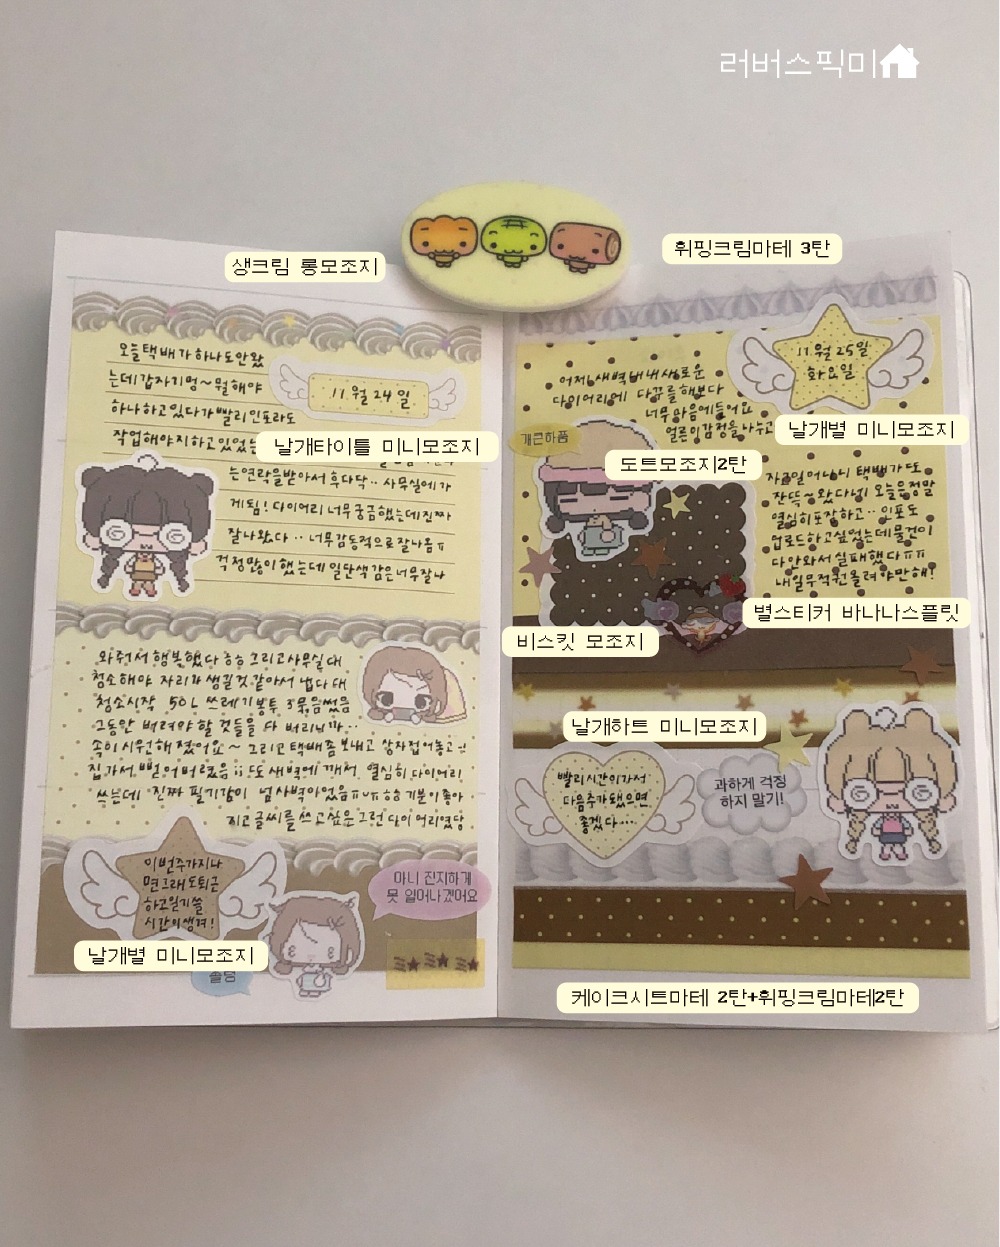 러버스픽미
휘핑크림마테 3탄
생크림 롱모조지
오늘택배가하나도안왔
는데갑자기멍~뭘해야
하나하고있다가빨리인포라도
작업해야지하고있었는
11월 24일
날개타이틀 미니모조지
는연락을받아서후다닥.. 사무실에가
게됨! 다이어리 너무궁금했는데진짜
잘나왔다.. 너무감동적으로잘나옴ㅠ
걱정많이했는데일단색감은너무잘나
와줘서 행복했다 ㅎㅎ 그리고사무실대
청소해야 자리가생길것같아서 냅다대
청소시작 50L 쓰레기봉투 3묶음썼음
그동안 버려야할것들을 다 버리니까..
속이시원해졌어요~ 그리고택배좀보내고 상자접어놓고
집가서 뻗어버렸음ii 또새벽에깨서 열심히다이어리
쓰는데 진짜 필기감이 넘사벽이었음ㅠㅠㅎㅎ기분이좋아
지고글씨를쓰고싶은그런다이어리였당
이번주가지나
면그래도퇴근
하고일기쓸
시간이생겨!
날개별 미니모조지
아니 진지하게
못 일어나겠어요
졸팅
11월 25일
화요일
어제새벽버내새로운
다이어리에 다꾸를해보다
너무마음에들어요
얼른이감정을나누고
날개별 미니모조지
개큰하품
도트모조지2탄
잔뜩~왔다넴 오늘은정말
열심히포장하고.. 인포도
업로드하고싶었는데물건이
다안와서실패했다ㅠㅠ
내일무적권올려야만해!
별스티커 바나나스플릿
비스킷 모조지
날개하트 미니모조지
빨리시간이가서
다음추가됐으면
좋겠다...
과하게 걱정
하지 말기!
케이크시트마테 2탄+휘핑크림마테2탄